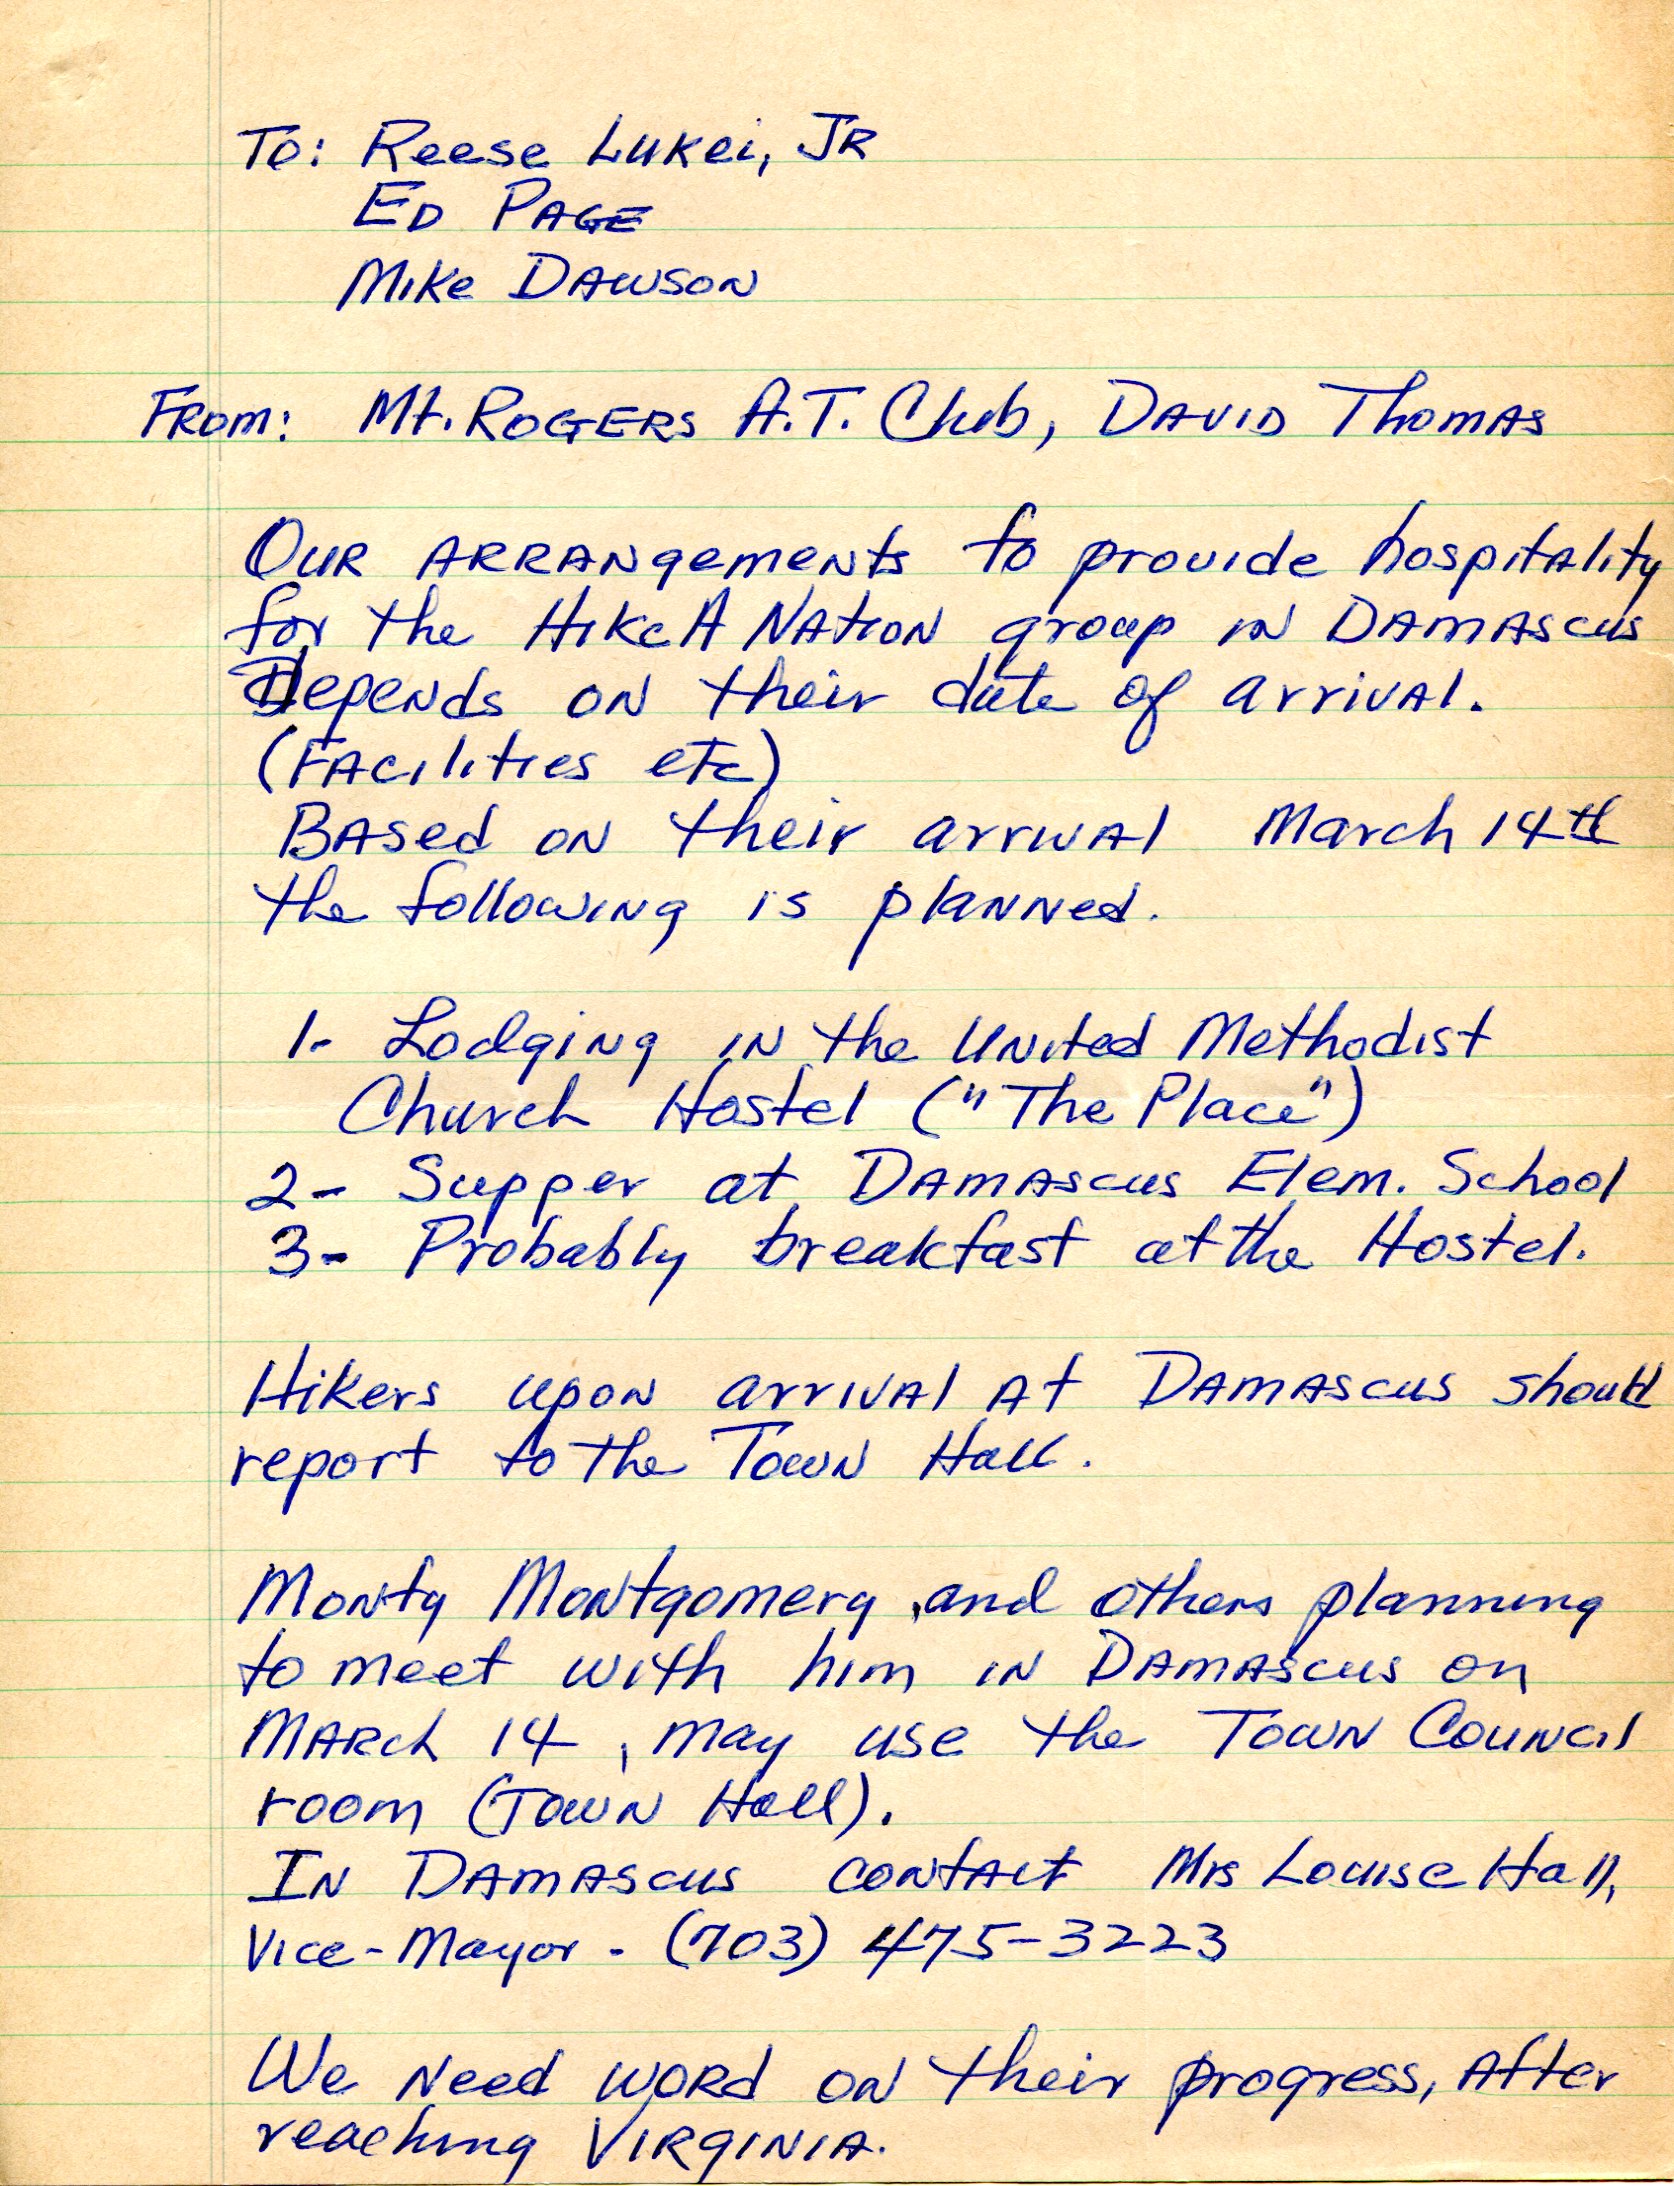 To: Reese Lukei, JR
Ed Page
Mike Dawson
From: Mt. Rogers A.T. Club, David Thomas
Our arrangements to provide hospitality
for the Hike A Nation group in Damascus
Depends on their date of arrival.
(Facilities etc)
Based on their arrival March 14th
the following is planned.
1- Lodging in the United Methodist
Church Hostel ("The Place")
2- Supper at Damascus Elem. School
3- Probably breakfast at the Hostel.
Hikers upon arrival at Damascus should
report to the Town Hall.
Monty Montgomery, and others planning
to meet with him in Damascus on
March 14, may use the Town Council
room (Town Hall).
In Damascus contact Mrs Louise Hall,
Vice-Mayor - (703) 475-3223
We need word on their progress, after
reaching Virginia.